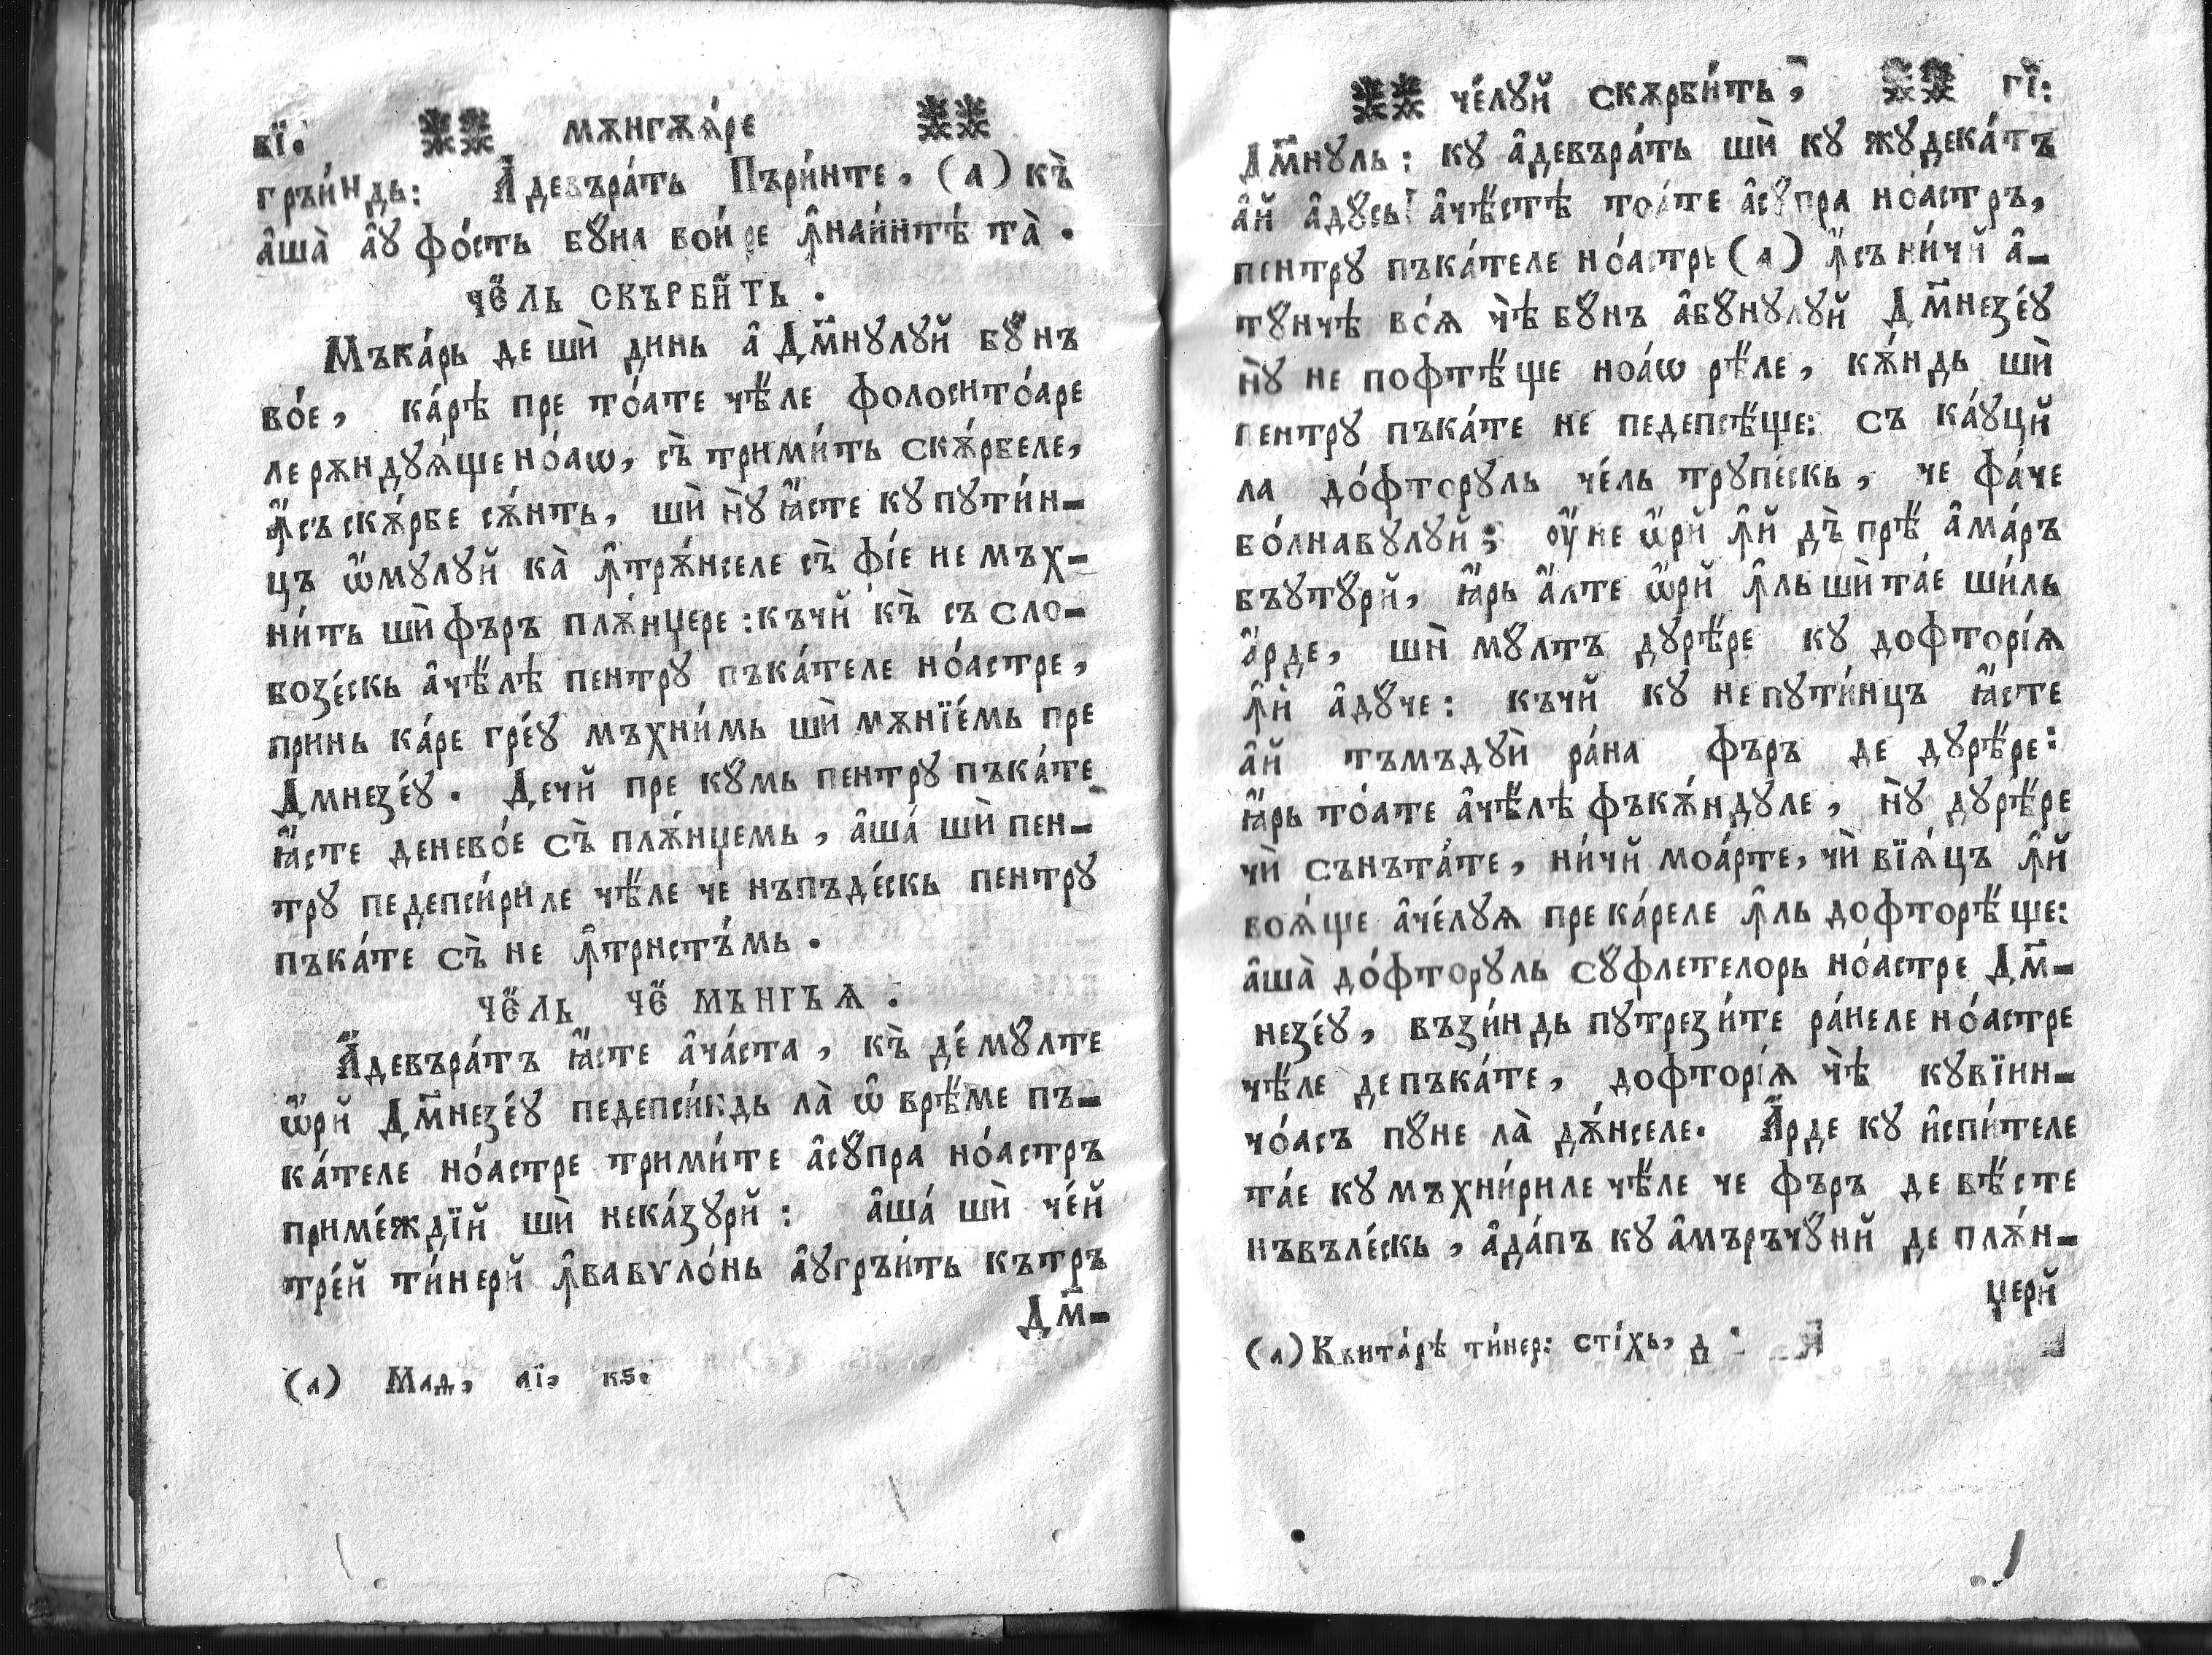 вї. мѫнгѫѧ́ре
гръи́ндь: А҆девъра́ть Пъри́нте, (а) къ̀
а҆ша̀ а҆ꙋ фо́сть бꙋ́на вои́ре ꙟ҆наи́нтѣ та̀.
че́ль скърби́ть.
Мъка́рь де шѝ динь а҆ Дм҃нꙋлꙋй бꙋ́нъ
во́е, ка́рѣ пре то́ате чѣ́ле фолосито́аре
ле рѫндꙋѧ́ще но́аѡ, съ̀ трими́ть скѫ́рбеле,
ꙟ҆съ скѫ́рбе сѫ́нть, шѝ нꙋ̀ ꙗ҆́сте кꙋ пꙋти́н-
цъ ѡ҆́мꙋлꙋй ка̀ ꙟ҆трѫ́нселе съ̀ фі́е не мъх-
ни́ть шѝ фъръ плѫ́нџере: къчй къ̀ съ сло-
бозе́скь а҆чѣ́лѣ пентрꙋ̀ пъка́теле но́астре,
принь ка́ре гре́ꙋ мъхни́мь шѝ мѫнїе́мь пре
Дмнезе́ꙋ. Дечй пре кꙋмь пентрꙋ пъка́те
ꙗ҆́сте деневое съ̀ плѫ́нџемь, а҆ша́ шѝ пен-
трꙋ педепси́риле чѣ́ле че нъпъде́скь пентрꙋ
пъка́те съ̀ не ꙟ҆тристъ́мь.
че́ль че́ мънгъѧ.
А҆девъра́тъ ꙗ҆́сте а҆ча́ста, къ̀ де́мꙋлте
ѡ҆́рй Дм҃незе́ꙋ педепси́ндь ла̀ ѡ҆ врѣ́ме пъ-
ка́теле но́астре трими́те а҆сꙋ́пра но́астръ
приме́ждїй шѝ нека́зꙋрй: а҆ша́ шѝ че́й
тре́й ти́нерй ꙟ҆вавѵло́нь а҆ꙋгръи́ть кътръ
Дм҃-
(а) Мад, аї, кѕ.
че́лꙋй скѫрби́ть, гї:
Дм҃нꙋль: кꙋ а҆девъра́ть шѝ кꙋ жꙋдека́тъ
а҆й а҆дꙋ́сь а҆чѣ́стѣ тоа́те а҆сꙋ́пра ноастръ,
пентрꙋ пъка́теле но́астре (а) ꙟ҆съ ни́чй а҆-
тꙋнчѣ во́ѧ чѣ̀ бꙋнъ а҆бꙋнꙋлꙋй Дм҃незе́ꙋ
нꙋ̀ не пофтѣ́ще ноа́ѡ рѣ́ле, кѫ́ндь шѝ
пентрꙋ пъка́те не педепсѣ́ще: съ ка́ꙋцй
ла до́фторꙋль че́ль трꙋпе́скь, че фа́че
бо́лнавꙋлꙋй; ѹ҆́не ѡ҆́рй ꙟ҆й дъ̀ прѣ̀ а҆ма́ръ
бъꙋтꙋ́рй, ꙗ҆́рь а҆́лте ѡ҆́рй ꙟ҆ль шѝ та́е ши́ль
а҆́рде, шѝ мꙋ́лтъ дꙋрѣ́ре кꙋ дофторі́ѧ
ꙟ҆й а҆дꙋ́че: къчй кꙋ непꙋти́нцъ ꙗ҆́сте
а҆й тъмъдꙋѝ ра́на фъръ де дꙋрѣ́ре:
ꙗ҆́рь то́ате а҆чѣ́лѣ фъкѫ́ндꙋле, нꙋ̀ дꙋрѣ́ре
чѝ сънъта́те, ни́чй моа́рте, чѝ вїѧ́цъ ꙟ҆й
воѧ́ще а҆че́лꙋѧ пре ка́реле ꙟ҆ль дофторѣ́ще:
а҆ша̀ до́фторꙋль сꙋ́флетелорь но́астре Дм҃-
незе́ꙋ, възи́ндь пꙋтрези́те ра́неле но́астре
чѣ́ле депъка́те, дофторі́ѧ чѣ̀ кꙋвїин-
чо́асъ пꙋ́не ла̀ дѫ́нселе. А҆́рде кꙋ и҆спи́теле
та́е кꙋ мъхни́риле чѣ́ле че фъръ де вѣ́сте
нъвъле́скь, а҆да́пъ кꙋ а҆мъръчꙋ́нй де плѫ́н-
џерй
(а) Кънта́рѣ ти́нер: сті́хь, д